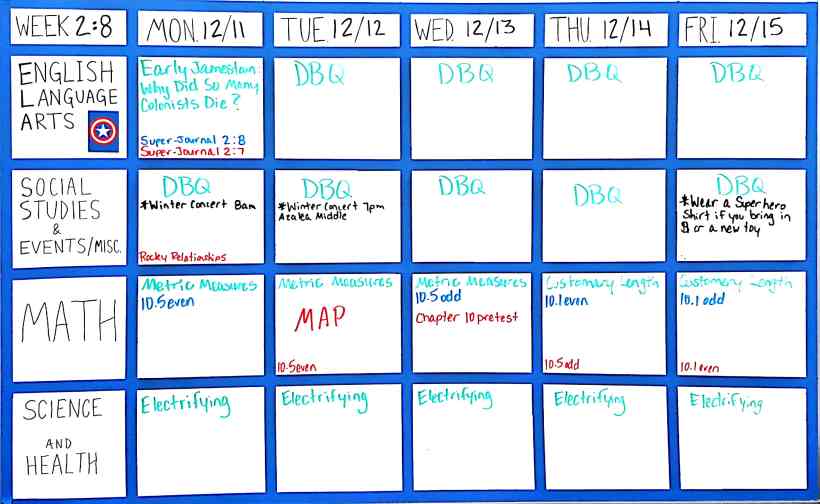 WEEK 2:8
MON. 12/11
TUE. 12/12
WED. 12/13
THU. 12/14
FRI. 12/15
ENGLISH
LANGUAGE
ARTS
Early Jamestown:
Why Did So Many
Colonists Die?
Super-Journal 2:8
Super-Journal 2:7
DBQ
DBQ
DBQ
DBQ
SOCIAL
STUDIES
&
EVENTS/MISC.
DBQ
*Winter Concert 8am
Rocky Relationships
DBQ
*Winter Concert 7pm
Azalea Middle
DBQ
DBQ
DBQ
*Wear a Superhero
Shirt if you bring in
or a new toy
MATH
Metric Measures
10.5even
Metric Measures
MAP
10.5even
Metric Measures
10.5 odd
Chapter 10 pretest
Customary Length
10.1even
10.5 odd
Customary Length
10.1 odd
10.1 even
SCIENCE
AND
HEALTH
Electrifying
Electrifying
Electrifying
Electrifying
Electrifying